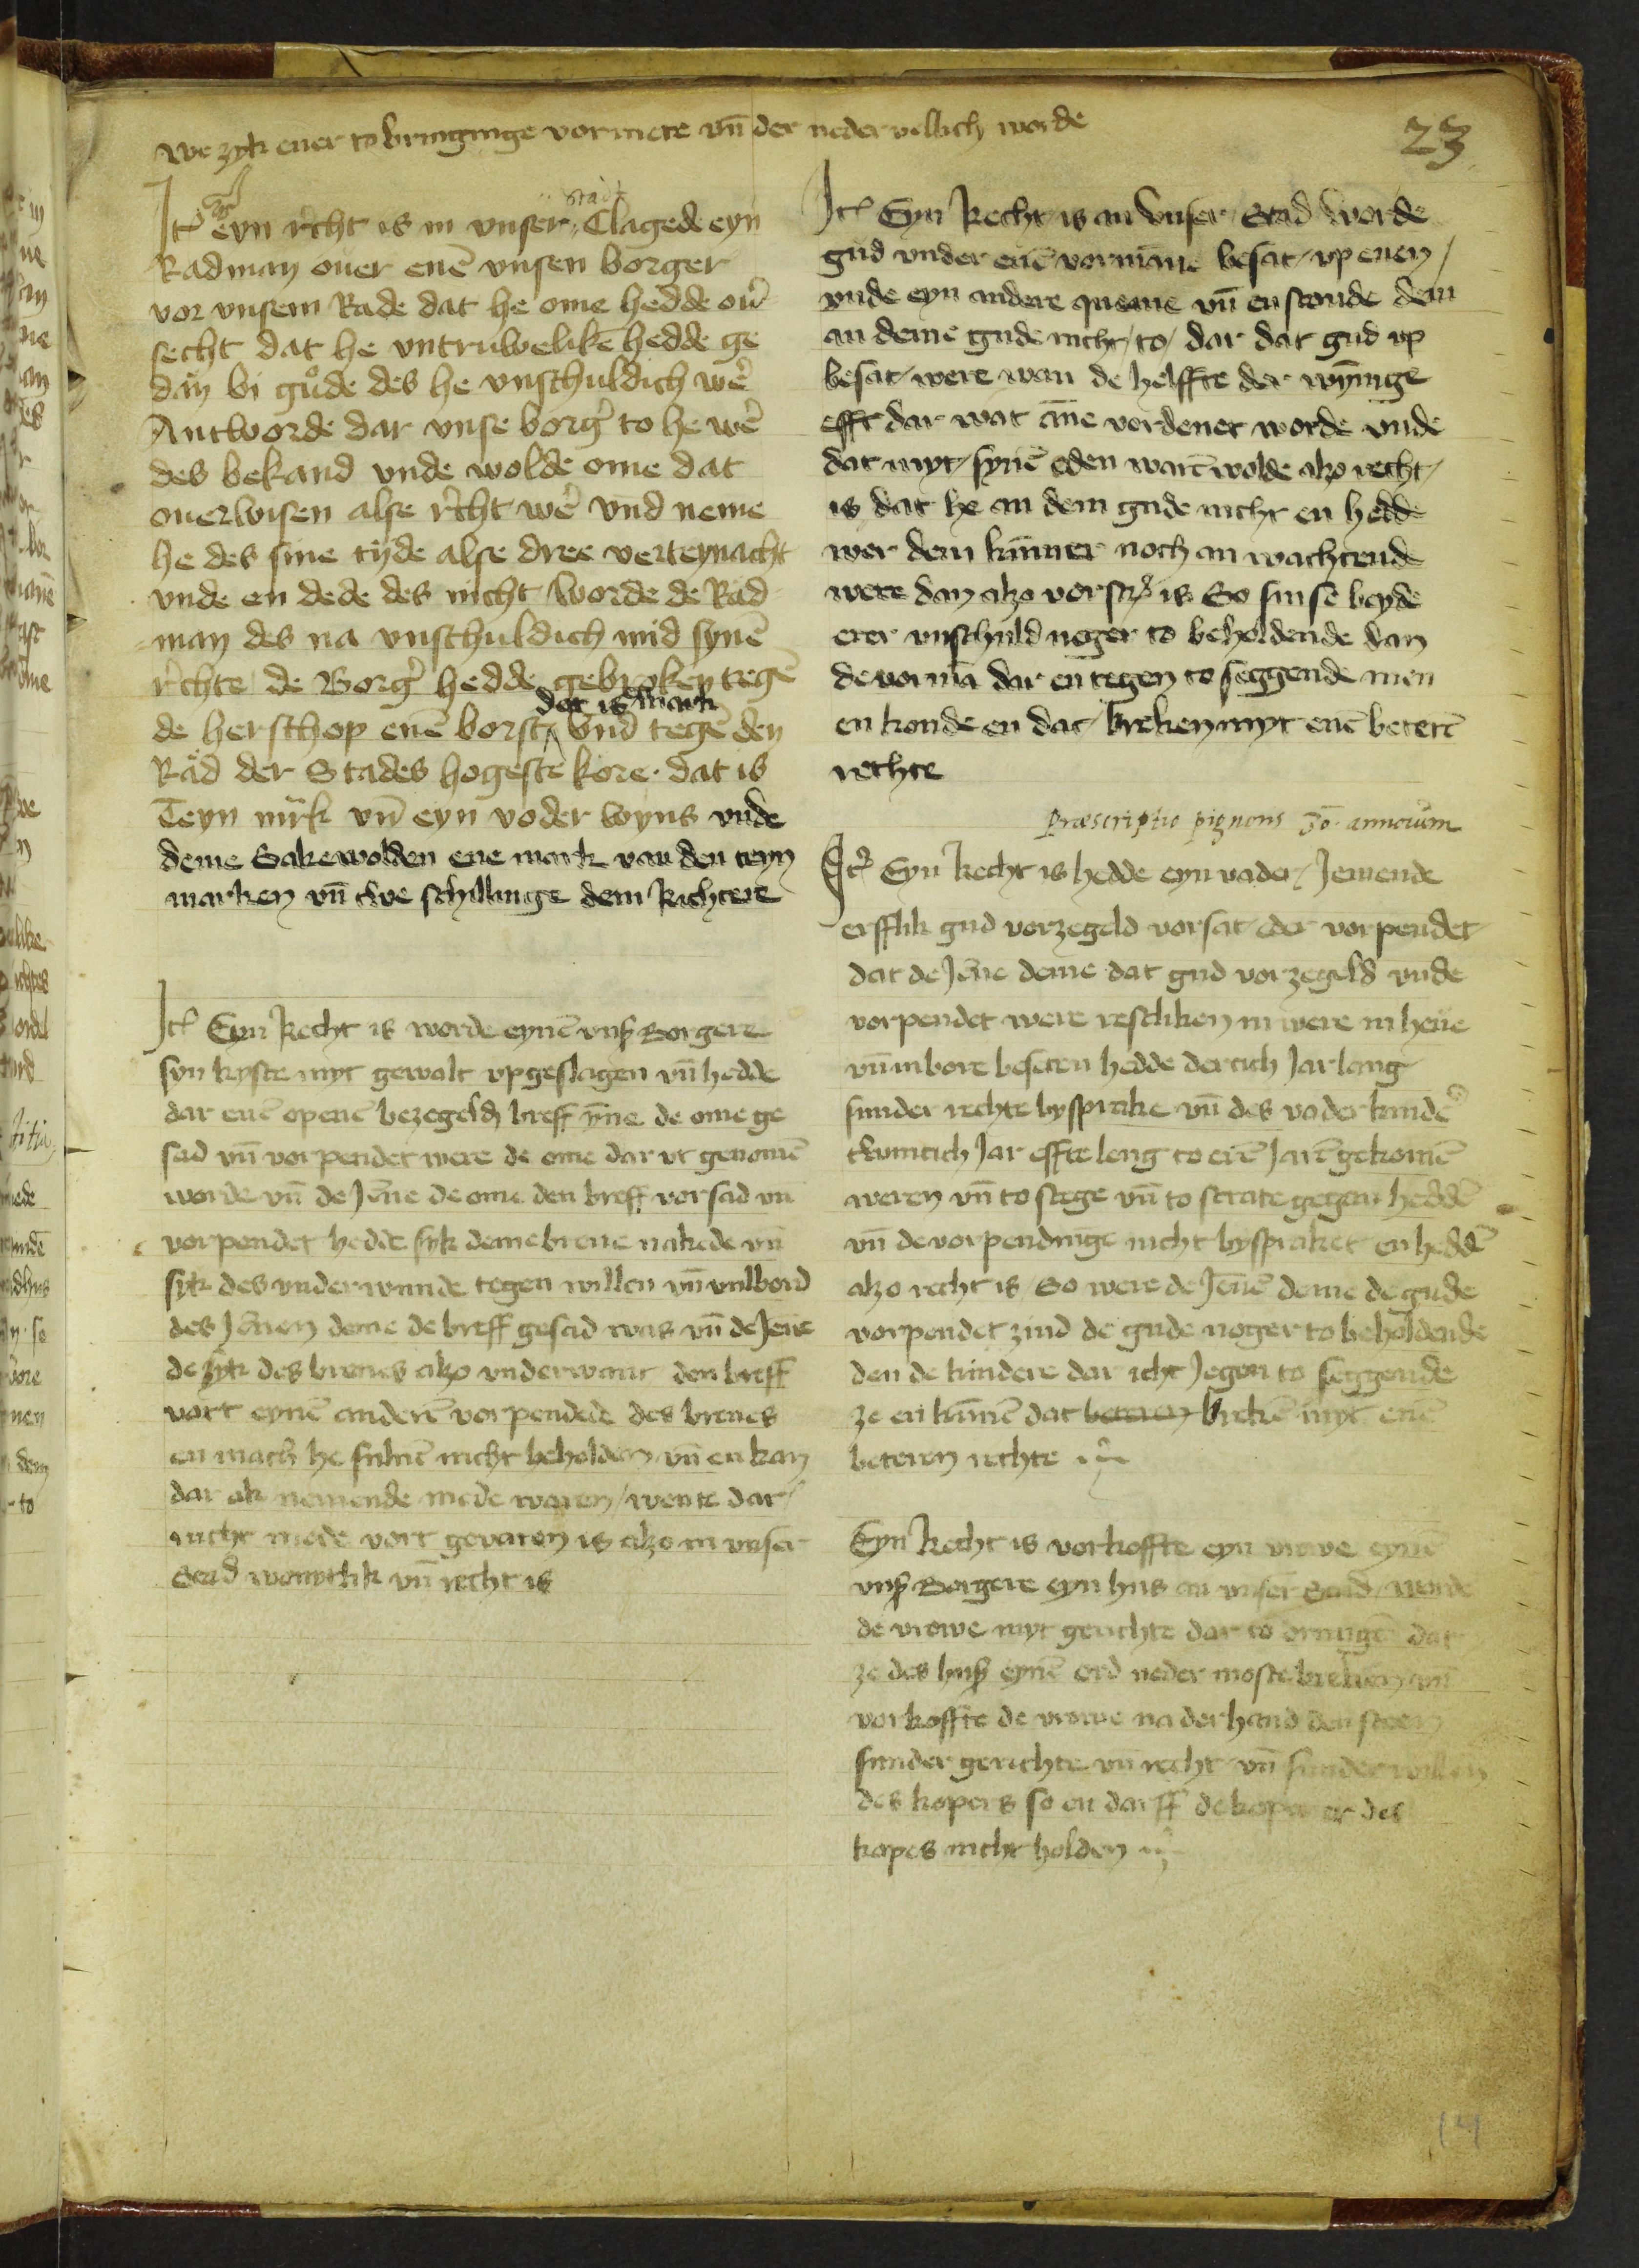 we zyk ener to bringinge vormete vn̄ der neder vellich worde
23
stad
Itͥ eyn rͤcht is in vnser Clagede eyn
Radman ouer enē vnsen borger
vor vnsem Rade dat he ome hedde ou͛
secht dat he vntruwelikē hedde ge
dan bi gůde des he vnschuldich we͛
Antworde dar vnse borg͛ to he we͛
des bekand vnde wolde ome dat
ouerwisen alse rͤcht we͛ vnd neme
he des sine tyde alse dree verteynacht
vnde en dede des nicht worde de Rad
man des na vnschuldich mid synē
rͤchte de Borg͛ hedde gebroken tegē
dat is I mark
de herschop enē borst vnd tegē den
Råd der Stades hogeste kore. dat is
Teyn mrk vn̄ eyn voder wyns vnde
deme Sakewolden ene mark van den teyn
marken vn̄ twe schillinge dem Richtere
Itͥ Eyn Recht is worde eynē vnsͥ Borgere
syn kyste myt gewalt vpgeslagen vn̄ hedde
dar enē openē bezegelden breff ynne de ome ge
sad vn̄ vorpendet were de ome dar vt genomē
worde vn̄ de Jene de ome den breff vorsad vn̄
vorpendet hedde syk deme breue nakede vn̄
syk des vnderwunde tegen willen vn̄ vulbord
des Jenen deme de breff gesad was vn̄ de Jene
de syk des breues alzo vnderwant den breff
vort eynē anderē vorpendede des breues
en mach he suluē nicht beholden vn̄ en kan
dar ok nemende mede waren / wente dar
nicht mede vort geuaren is alzo in vnser
Stad wontlik vn̄ recht is
Itͥ Eyn Recht is an vnser Stad worde
gud vnder enē vormūne besat / vp enen /
vnde eyn andere queme vn̄ en stonde dem
an deme gude nicht / to / dar dat gud vp
besat / were wan de helffte der wynīge
efft dar wat ane vordenet worde vnde
dat myt / synē eden warē wolde alzo recht /
is / dat he an dem gude nicht en hedde
wer dem kūmer noch an wachtend
were dan alzo vorscrͥ is So sin se beyde
erer vnschuld neger to beholdende dan
de vormū dar en tegen to seggende men
en konde en dat / breken myt enē beterē
rechte
Præscriptio pignoris 30. annorum
Itͥ Eyn Recht is hedde eyn vader / Jemende
erfflik gud vorzegeld vorsat / eder vorpendet
dat de Jene deme dat gud vorzegeld vnde
vorpendet were resliken in were in heue
vn̄ in bore beseten hedde dertich Jar lang
sunder rechte bysprake vn̄ des vader kinde͛
twintich Jar effte leng to erē Jarē gekomē
weren vn̄ to stege vn̄ to strate gegan heddē
vn̄ de vorpendinge nicht byspraket en heddē
alzo recht is / So were de Jene deme de gude
vorpendet zind de gude neger to beholdende
den de kindere dar icht Jegen to seggende
ze en kūnē dat beteren brekē myt enē
beteren rechte
Eyn Recht is vorkoffte eyn vrowe eynē
vnsͥ Borgere eyn hus an vnser Stad / worde
de vrowe myt gerichte dar to drungē dat
ze des husͥ eynē ord neder moste breken vn̄
vorkoffte de vrowe na der hand den steen
sunder gerichte vn̄ recht vn̄ sunder willen
des kopers so en darff de koper er des
kopes nicht holden
14